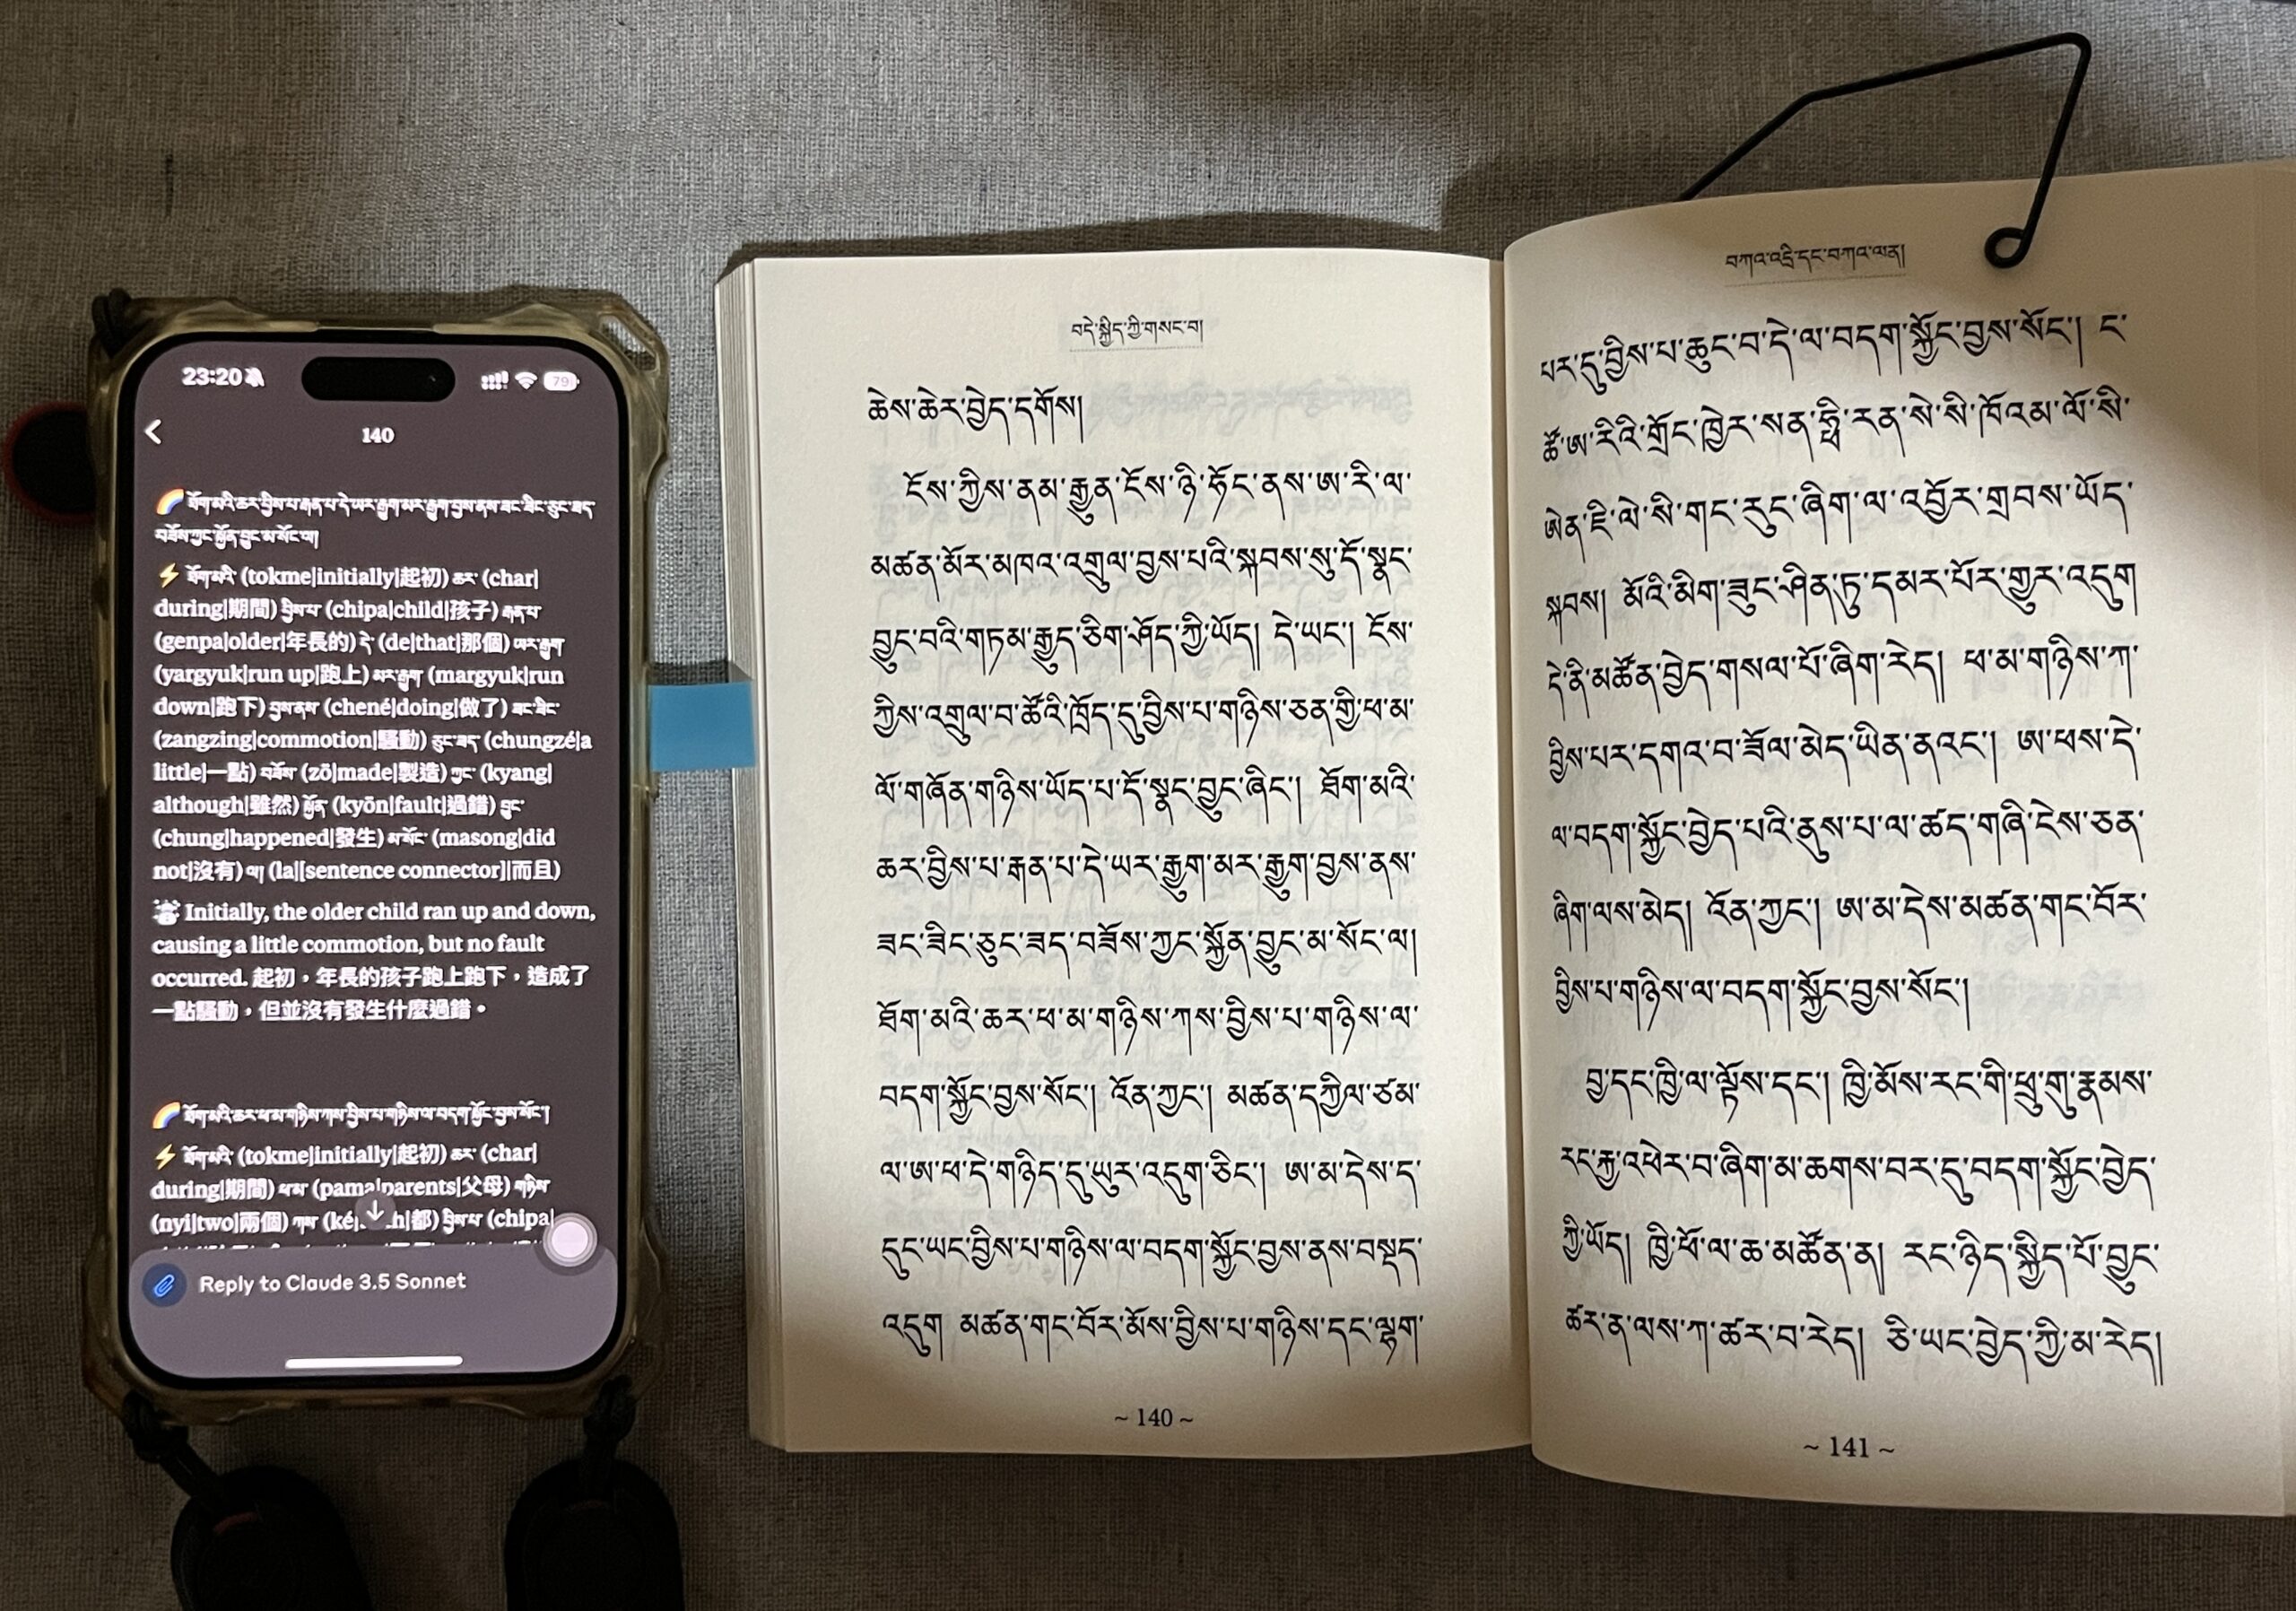 23:20
79
140
🌈 ཐོག་མའི་ཆར་བྱིས་པ་རྒན་པ་དེ་ཡར་རྒྱུག་མར་རྒྱུག་བྱས་ནས་ཟང་ཟིང་ཅུང་ཟད་
བཟོས་ཀྱང་སྐྱོན་བྱུང་མ་སོང་ལ།
⚡ ཐོག་མའི་ (tokme|initially|起初) ཆར་ (char|
during|期間) བྱིས་པ་ (chipa|child|孩子) རྒན་པ་
(genpa|older|年長的) དེ་ (de|that|那個) ཡར་རྒྱུག་
(yargyuk|run up|跑上) མར་རྒྱུག་ (margyuk|run
down|跑下) བྱས་ནས་ (chené|doing|做了) ཟང་ཟིང་
(zangzing|commotion|騷動) ཅུང་ཟད་ (chungzé|a
little|一點) བཟོས་ (zō|made|製造) ཀྱང་ (kyang|
although|雖然) སྐྱོན་ (kyōn|fault|過錯) བྱུང་
(chung|happened|發生) མ་སོང་ (masong|did
not|沒有) ལ། (la|[sentence connector]|而且)
Initially, the older child ran up and down,
causing a little commotion, but no fault
occurred. 起初，年長的孩子跑上跑下，造成了
一點騷動，但並沒有發生什麼過錯。
🌈 ཐོག་མའི་ཆར་ཕ་མ་གཉིས་ཀས་བྱིས་པ་གཉིས་ལ་བདག་སྐྱོང་བྱས་སོང་།
⚡ ཐོག་མའི་ (tokme|initially|起初) ཆར་ (char|
during|期間) ཕ་མ་ (pama|parents|父母) གཉིས་
(nyi|two|兩個) ཀས་ (ké| |都) བྱིས་པ་ (chipa|
Reply to Claude 3.5 Sonnet
བདེ་སྐྱིད་ཀྱི་གསང་བ།
ཆེས་ཆེར་བྱེད་དགོས།
ངོས་ཀྱིས་ནམ་རྒྱུན་ངོས་ཉི་ཧོང་ནས་ཨ་རི་ལ་
མཚན་མོར་མཁའ་འགྲུལ་བྱས་པའི་སྐབས་སུ་དོ་སྣང་
བྱུང་བའི་གཏམ་རྒྱུད་ཅིག་ཤོད་ཀྱི་ཡོད། དེ་ཡང་། ངོས་
ཀྱིས་འགྲུལ་བ་ཚོའི་ཁྲོད་དུ་བྱིས་པ་གཉིས་ཅན་གྱི་ཕ་མ་
ལོ་གཞོན་གཉིས་ཡོད་པ་དོ་སྣང་བྱུང་ཞིང་། ཐོག་མའི་
ཆར་བྱིས་པ་རྒན་པ་དེ་ཡར་རྒྱུག་མར་རྒྱུག་བྱས་ནས་
ཟང་ཟིང་ཅུང་ཟད་བཟོས་ཀྱང་སྐྱོན་བྱུང་མ་སོང་ལ།
ཐོག་མའི་ཆར་ཕ་མ་གཉིས་ཀས་བྱིས་པ་གཉིས་ལ་
བདག་སྐྱོང་བྱས་སོང་། འོན་ཀྱང་། མཚན་དཀྱིལ་ཙམ་
ལ་ཨ་ཕ་དེ་གཉིད་དུ་ཡུར་འདུག་ཅིང་། ཨ་མ་དེས་ད་
དུང་ཡང་བྱིས་པ་གཉིས་ལ་བདག་སྐྱོང་བྱས་ནས་བསྡད་
འདུག མཚན་གང་བོར་མོས་བྱིས་པ་གཉིས་དང་ལྷག་
~ 140 ~
བཀའ་འདྲི་དང་བཀའ་ལན།
པར་དུ་བྱིས་པ་ཆུང་བ་དེ་ལ་བདག་སྐྱོང་བྱས་སོང་། ང་
ཚོ་ཨ་རིའི་གྲོང་ཁྱེར་སན་ཧྥི་རན་སེ་སི་ཁོའམ་ལོ་སི་
ཨེན་ཇི་ལེ་སི་གང་རུང་ཞིག་ལ་འབྱོར་གྲབས་ཡོད་
སྐབས། མོའི་མིག་ཟུང་ཤིན་ཏུ་དམར་པོར་གྱུར་འདུག
དེ་ནི་མཚོན་བྱེད་གསལ་པོ་ཞིག་རེད། ཕ་མ་གཉིས་ཀ་
བྱིས་པར་དགའ་བ་ཟོལ་མེད་ཡིན་ནའང་། ཨ་ཕས་དེ་
ལ་བདག་སྐྱོང་བྱེད་པའི་ནུས་པ་ལ་ཚད་གཞི་ངེས་ཅན་
ཞིག་ལས་མེད། འོན་ཀྱང་། ཨ་མ་དེས་མཚན་གང་བོར་
བྱིས་པ་གཉིས་ལ་བདག་སྐྱོང་བྱས་སོང་།
བྱ་དང་ཁྱི་ལ་ལྟོས་དང་། ཁྱི་མོས་རང་གི་ཕྲུ་གུ་རྣམས་
རང་རྐྱ་འཕེར་བ་ཞིག་མ་ཆགས་བར་དུ་བདག་སྐྱོང་བྱེད་
ཀྱི་ཡོད། ཁྱི་ཕོ་ལ་ཆ་མཚོན་ན། རང་ཉིད་སྐྱིད་པོ་བྱུང་
ཚར་ན་ལས་ཀ་ཚར་བ་རེད། ཅི་ཡང་བྱེད་ཀྱི་མ་རེད།
~ 141 ~